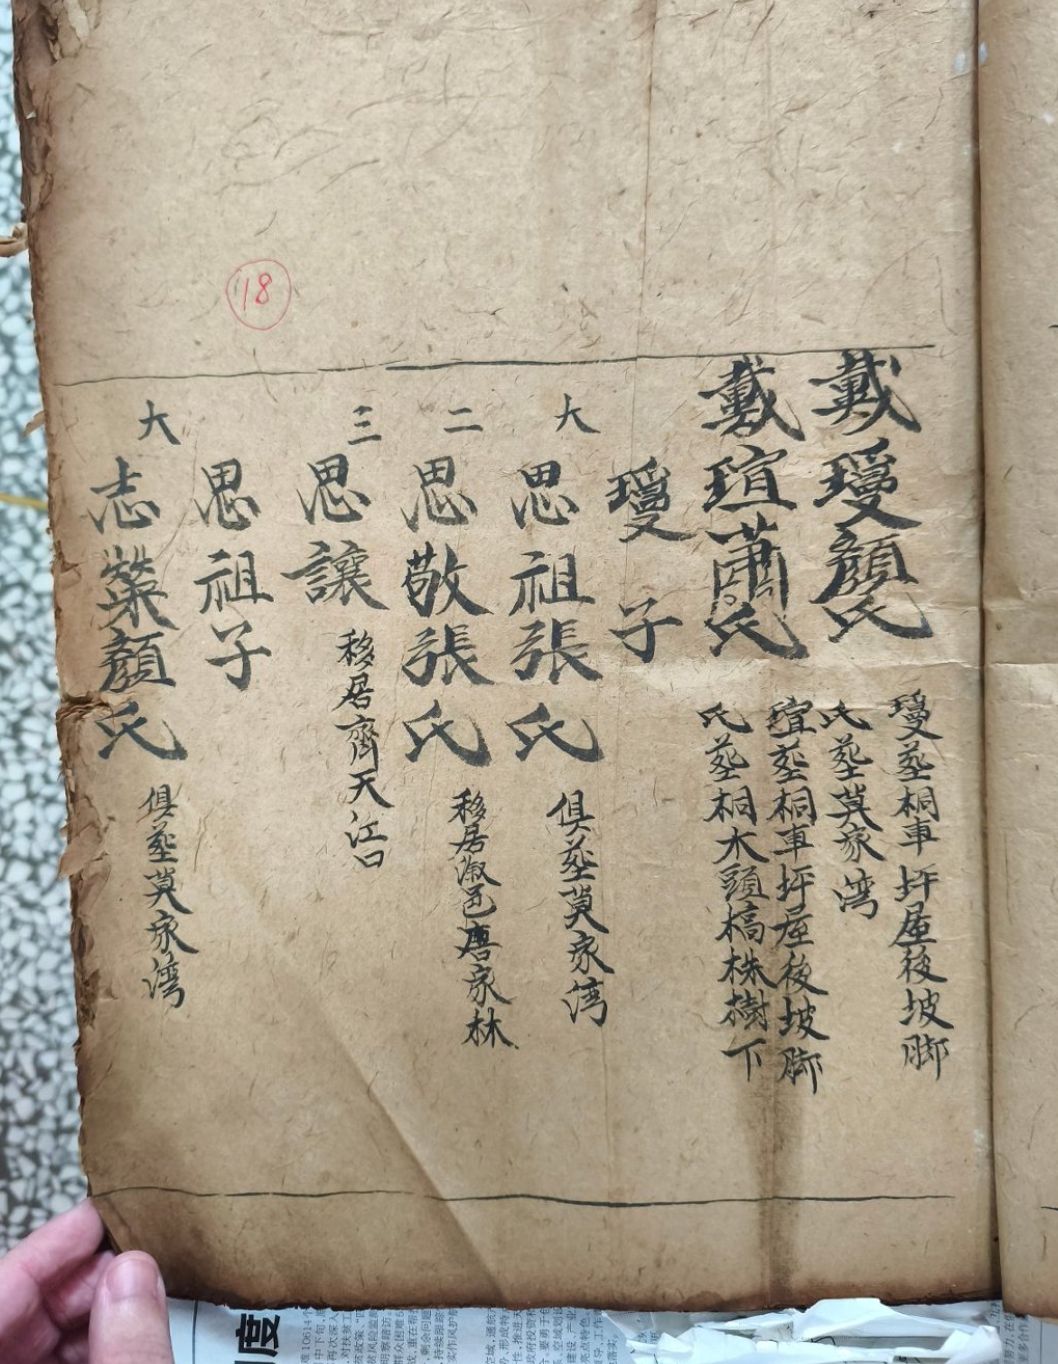 戴瑻顏氏
瑻塟桐車坪屋後坡脚
氏塟莫家湾
戴瑄蕭氏
瑄塟桐車坪屋後坡脚
氏塟桐木頭槁株樹下
瑻子
大
思祖張氏
俱塟莫家湾
二
思敬張氏
移居溆邑唐家林
三
思讓
移居齊天江口
思祖子
大
志榮顏氏
俱塟莫家湾
18
度